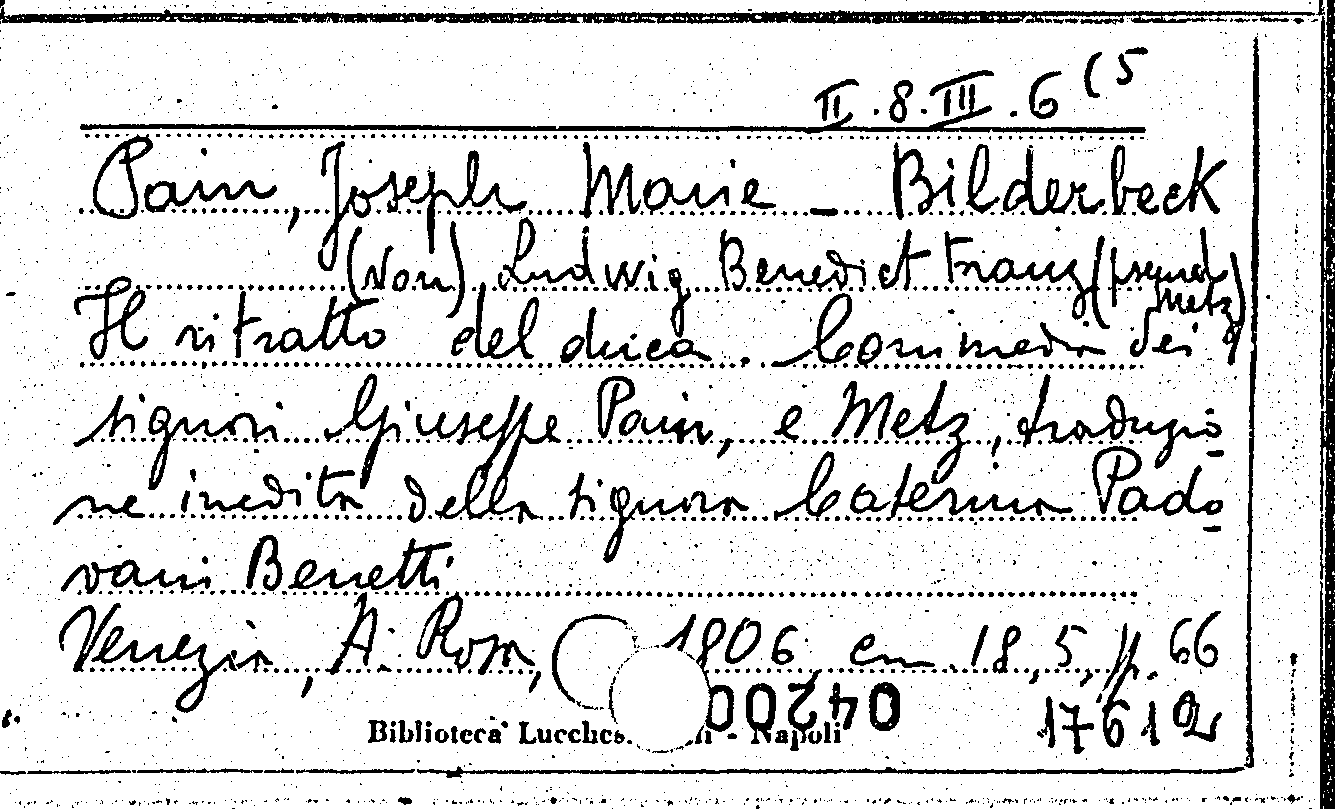 II.8.III.6 (5
Pain, Joseph Marie - Bilderbeck
(von), Ludwig Benedict Franz (pseud.
Metz)
Il ritratto del duca. Commedia dei
signori Giuseppe Pain, e Metz, traduzio
ne inedita della signora Caterina Pado
vani Benetti
Venezia, A. Rosa, 1806, cm. 18,5, pp. 66
04200
17612
Biblioteca - Napoli